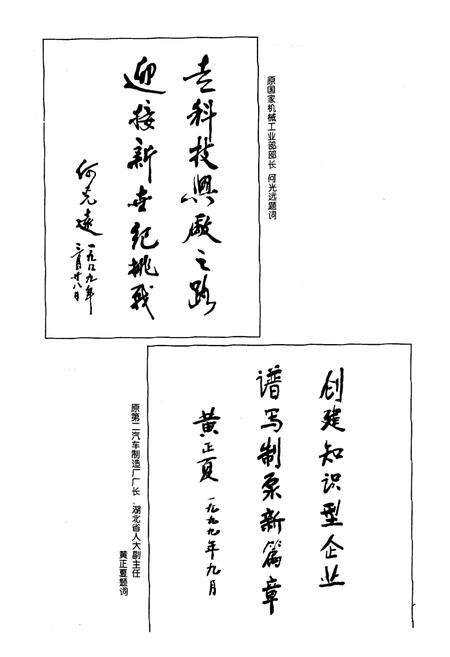 原国家机械工业部部长 何光远题词
走科技興廠之路
迎接新世纪挑战
何光遠
一九九九年
三月廿八日
创建知识型企业
谱写制泵新篇章
黄正夏 一九九九年九月
原第二汽车制造厂厂长、湖北省人大副主任
黄正夏题词